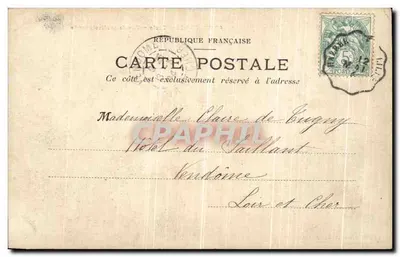 RÉPUBLIQUE FRANÇAISE
CARTE POSTALE
Ce côté est exclusivement réservé à l'adresse
Mademoiselle Claire de Tugny
CPAPHIL
Hôtel du Saillant
Vendôme
Loir et Cher